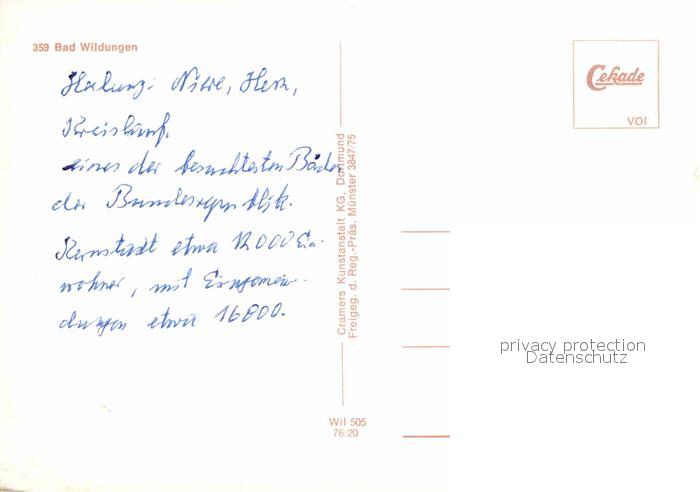 359 Bad Wildungen
Heilung: Niere, Herz,
Kreislauf.
eines der besuchtesten Bäder
der Bundesrepublik.
Kernstadt etwa 12000 Ein-
wohner, mit Eingemein-
dungen etwa 16800.
Cramers Kunstanstalt KG, Dortmund
Freigeg. d. Reg.-Präs. Münster 3847/75
Wil 505
76/20
Cekade
VOI
privacy protection
Datenschutz